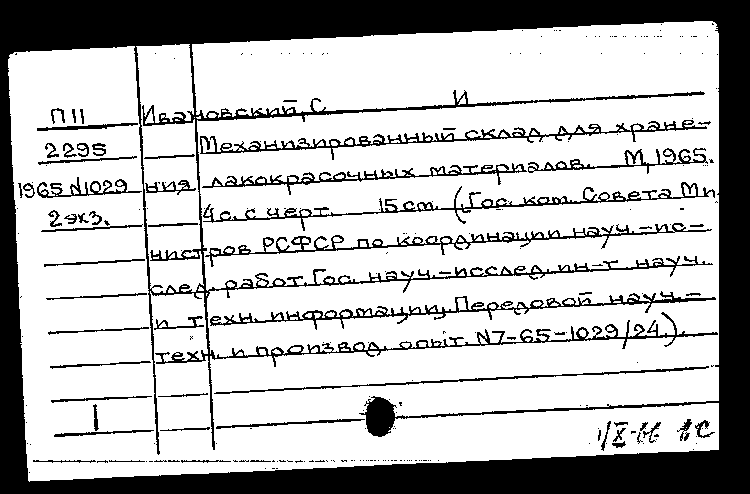 П11 Ивановский, С И
2295 Механизированный склад для хране-
1965 N1029 ния лакокрасочных материалов. М, 1965.
2 экз. 4 с. с черт. 15 см. (Гос. ком. Совета Ми
нистров РСФСР по координации науч.-ис-
след. работ. Гос. науч.-исслед. ин-т науч.
и техн. информации. Передовой науч.-
техн. и производ. опыт. N7-65-1029/24.).
1/X-66